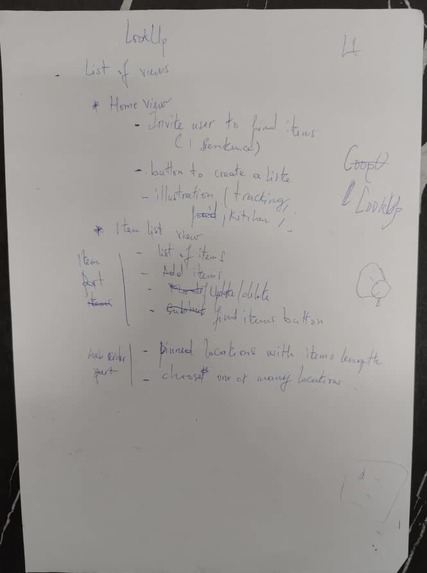 LookUp
L1
- List of views
* Home view
- Invite user to find items
(1 sentence)
- button to create a liste
- illustration (tracking,
food, kitchen /..
LookUp
* Item list view
Item
part
- list of items
- Add items
- Update/delete
- Submit find items button
part
- pinned locations with items
- choose one or many locations